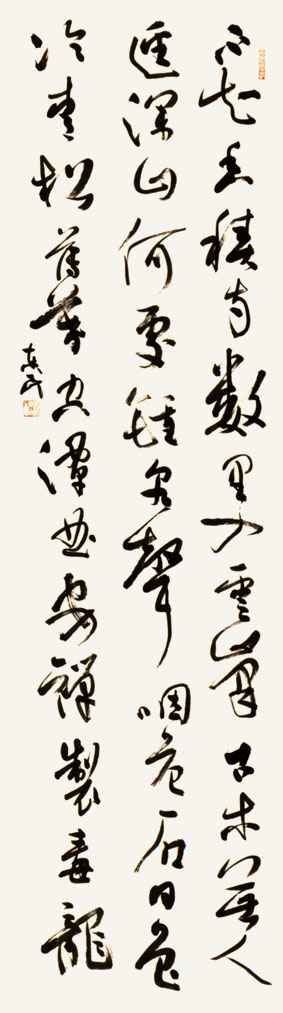 不知香積寺數里入雲峯古木無人
逕深山何處鐘泉聲咽危石日色
冷青松薄暮空潭曲安禪製毒龍